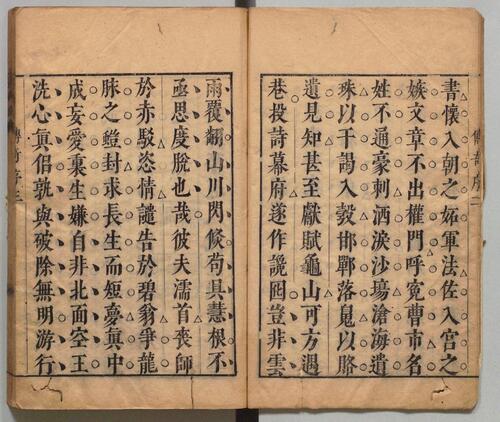 傳奇序二
書懷入朝之妬軍法佐入宮之
嫉文章不出權門呼寃曹市名
姓不通豪刺洒淚沙塲滄海遺
珠以干謁入彀邯鄲落鬼以賂
遺見知甚至獻賦龜山可方遇
巷投詩幕府遂作讒囮豈非雲
雨覆翻山川閃倐苟具慧根不
亟思度脫也哉彼夫濡首喪師
於赤駁恣情譴告於碧翁爭龍
脉之螘封求長生而短夢眞中
成妄愛裏生嫌自非北面空王
洗心眞侶孰與破除無明游行
傳奇序三